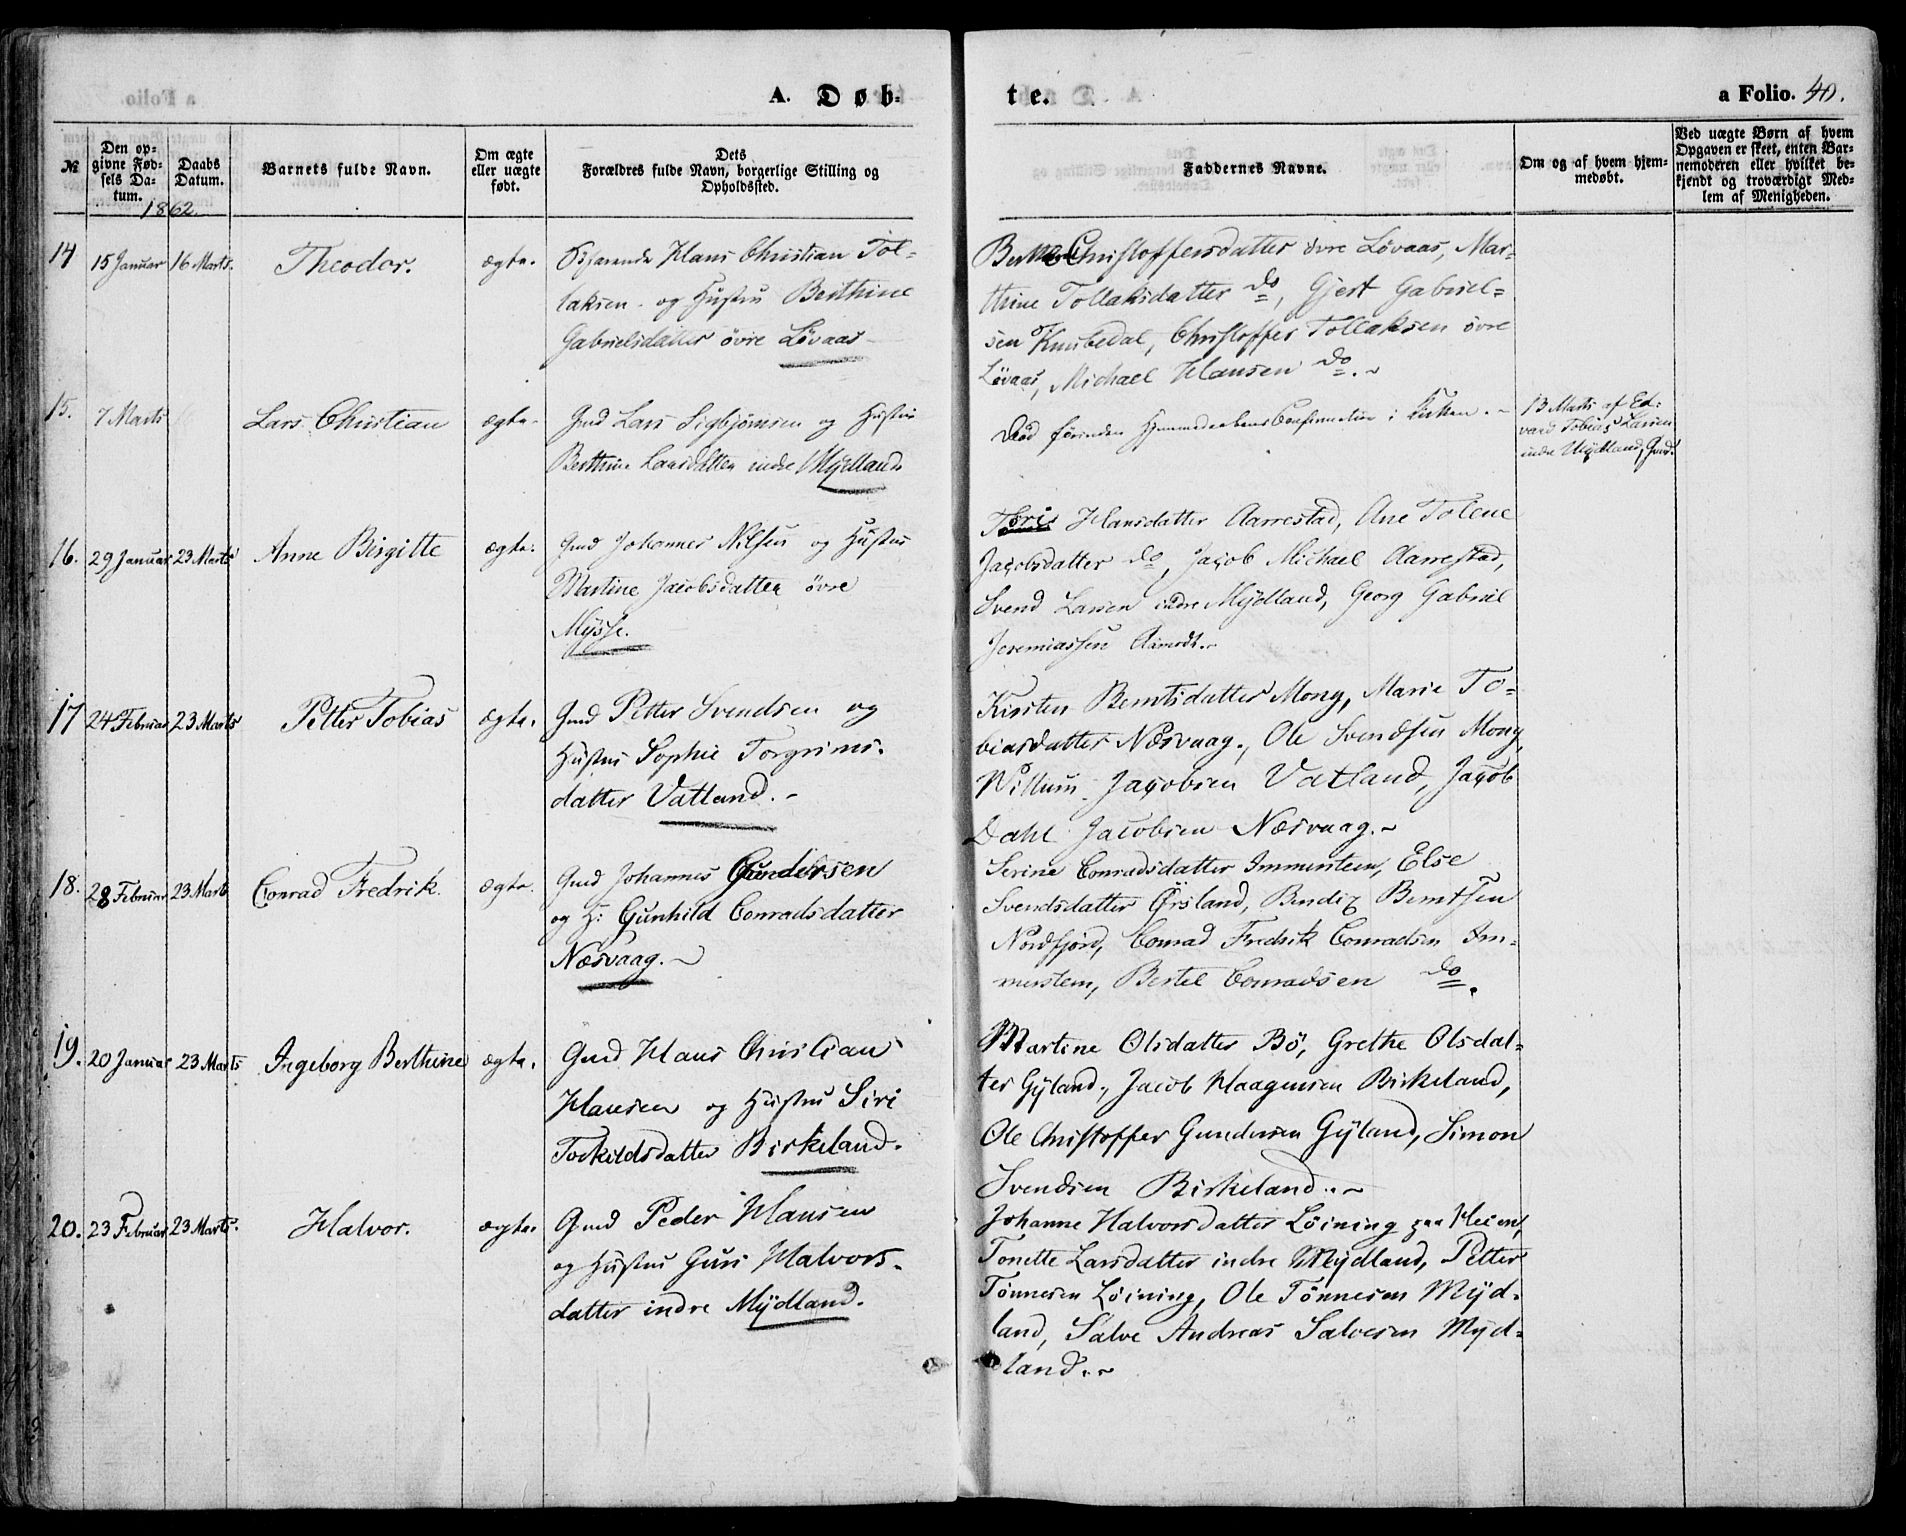 A. Døb-
te.
a Folio. 40.
№
Den op-
givne Fød-
sels Da-
tum.
Daabs
Datum.
Barnets fulde Navn.
Om ægte
eller uægte
født.
Dets
Forældres fulde Navn, borgerlige Stilling og
Opholdssted.
Faddernes Navne.
Om og af hvem hjem-
medøbt.
Ved uægte Børn af hvem
Opgaven er skeet, enten Bar-
nemoderen eller hvilket be-
kjendt og troværdigt Med-
lem af Menigheden.
1862.
14
15 Januar
16 Marts.
Theodor.
ægte.
Hans Christian Tol-
laksen og Hustru Berthine
Gabrielsdatter øvre Løvaas
Christoffersdatter øvre Løvaas, Mar-
thine Tollaksdatter do, Gjert Gabriel-
sen Knubedal, Christoffer Tollaksen øvre
Løvaas, Michael Hansen do.
15.
7 Marts
Lars Christian
ægte.
Gmd Lars Sigbjørnsen og Hustru
Berthine Larsdatter indre Mydland
Død forinden Hjemmedaabens Confirmation i Kirken.
13 Marts af Ed-
vard Tobias Larsen
indre Mydland, Gmd.
16.
29 Januar
23 Marts
Anne Birgitte
ægte.
Gmd Johannes Nilsen og Hustru
Martine Jacobsdatter øvre
Mysse.
Tori Hansdatter Aarrestad, Ane Tolene
Jacobsdatter do, Jacob Michael Aarrestad,
Svend Larsen indre Mydland, Georg Gabriel
Jeremiassen Aamodt.
17
24 Februar
23 Marts
Petter Tobias
ægte.
Gmd Petter Svendsen og
Hustru Sophie Torgrims-
datter Vatland.
Kirsten Berntsdatter Mong, Marie To-
biasdatter Næsvaag, Ole Svendsen Mong,
Willum Jacobsen Vatland, Jacob
Dahl Jacobsen Næsvaag.
18.
28 Februar
23 Marts
Conrad Fredrik.
ægte.
Gmd Johannes Gundersen
og H: Gunhild Conradsdatter
Næsvaag.
Serine Conradsdatter Immerstein, Else
Svendsdatter Ørsland, Bendix Berntsen
Nordfjord, Conrad Fredrik Conradsen Im-
merstein, Bertel Conradsen do.
19.
20 Januar
23 Marts
Ingeborg Berthine
ægte.
Gmd Hans Christian
Hansen og Hustru Siri
Torkildsdatter Birkeland.
Martine Olsdatter Bø, Grethe Olsdat-
ter Gyland, Jacob Haagensen Birkeland,
Ole Christoffer Gundersen Gyland, Simon
Svendsen Birkeland.
20.
23 Februar
23 Marts.
Halvor.
ægte
Gmd Peder Hansen
og Hustru Guri Halvors-
datter indre Mydland.
Johanne Halvorsdatter Løining paa Heien,
Tonette Larsdatter indre Mydland, Petter
Tønnesen Løining, Ole Tønnesen Myd-
land, Salve Andreas Salvesen Myd-
land.